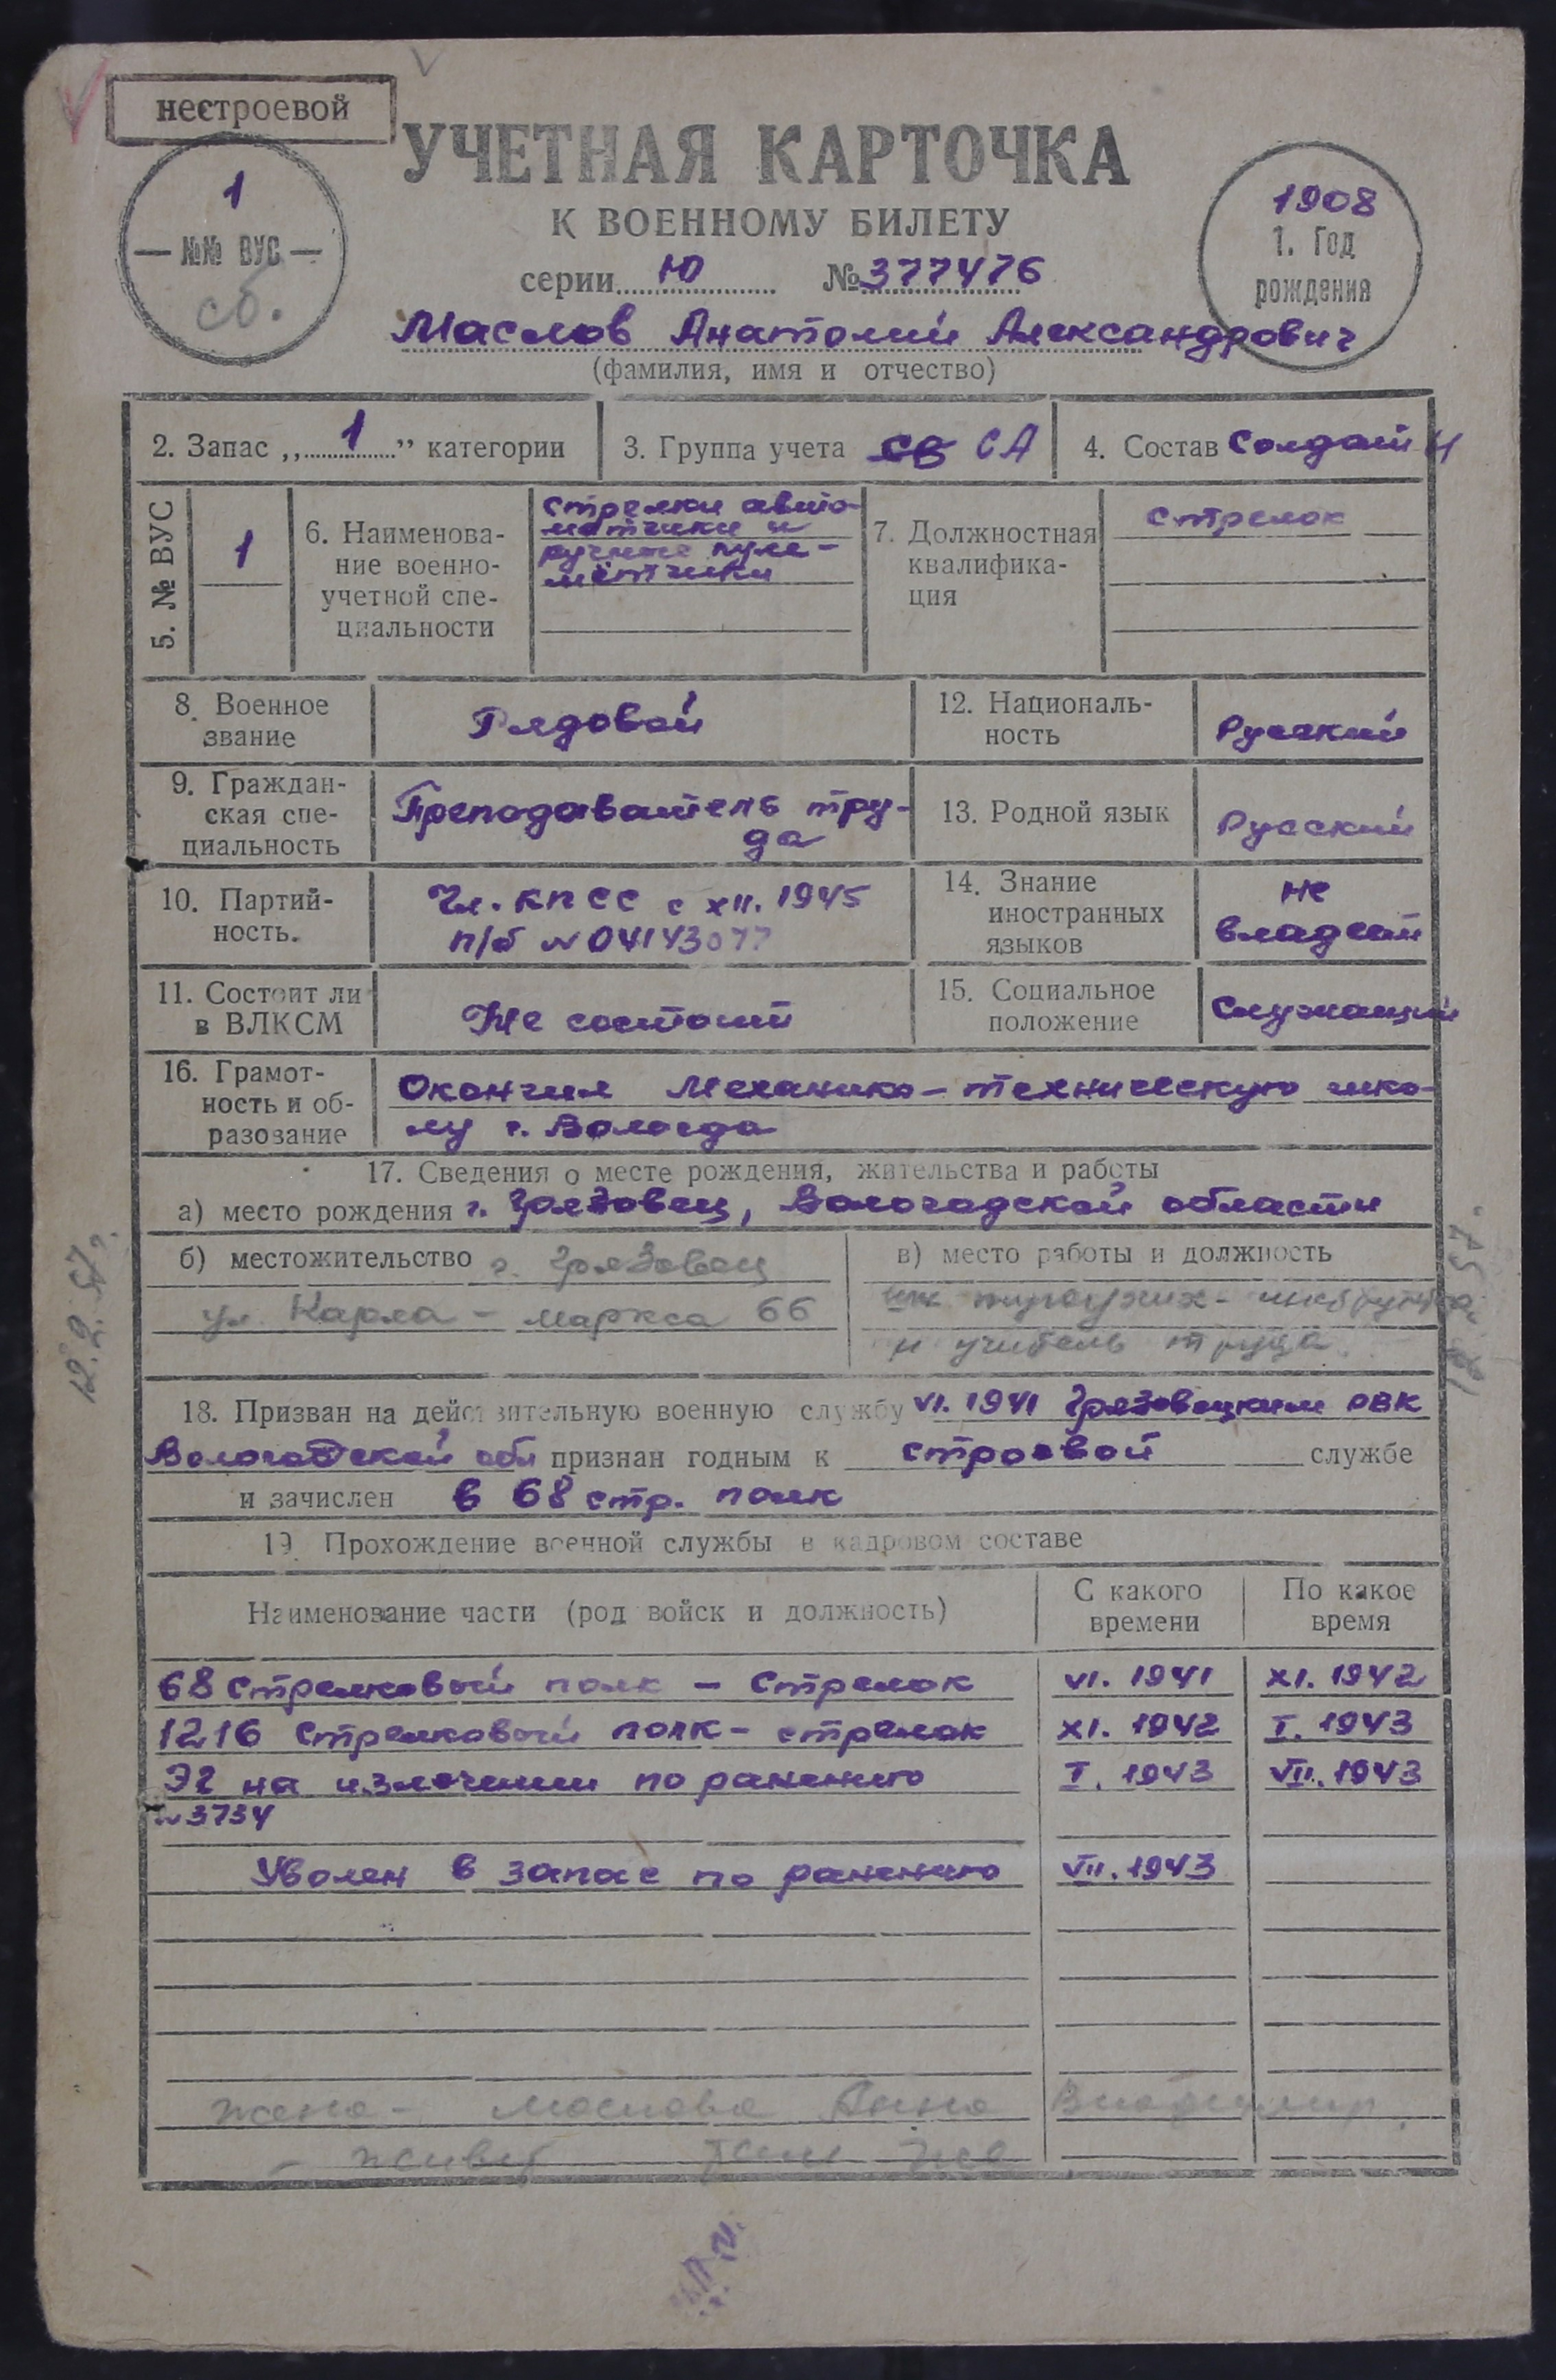 нестроевой
УЧЕТНАЯ КАРТОЧКА
К ВОЕННОМУ БИЛЕТУ
серии Ю № 377476
1
№№ ВУС
сб.
1908
1. Год
рождения
Маслов Анатолий Александрович
(фамилия, имя и отчество)
2. Запас „1” категории
3. Группа учета СВ СА
4. Состав Солдат
5. № ВУС
1
6. Наименова-
ние военно-
учетной спе-
циальности
Стрелки авто-
матчики и
ручные пуле-
метчики
7. Должностная
квалифика-
ция
Стрелок
8. Военное
звание
Рядовой
12. Националь-
ность
Русский
9. Граждан-
ская спе-
циальность
Преподаватель тру-
да
13. Родной язык
Русский
10. Партий-
ность.
Чл. КПСС с XII. 1945
п/б № 04143077
14. Знание
иностранных
языков
не
владеет
11. Состоит ли
в ВЛКСМ
Не состоит
15. Социальное
положение
Служащий
16. Грамот-
ность и об-
разование
Окончил Механико-техническую шко-
лу г. Вологда
17. Сведения о месте рождения, жительства и работы
а) место рождения г. Грязовец, Вологодской области
б) местожительство г. Грязовец
ул. Карла-маркса 66
в) место работы и должность
и учитель труда
12.2.57г.
18. Призван на действительную военную службу VI. 1941 Грязовецким РВК
Вологодской обл признан годным к строевой службе
и зачислен в 68 стр. полк
19 Прохождение военной службы в кадровом составе
Наименование части (род войск и должность)
С какого
времени
По какое
время
68 Стрелковый полк - Стрелок VI. 1941 XI. 1942
1216 Стрелковый полк - стрелок XI. 1942 I. 1943
ЭГ на излечении по ранению I. 1943 VII. 1943
№ 3734
Уволен в запас по ранению VII. 1943
жена - Маслова Анна Владимир.
- живет там же